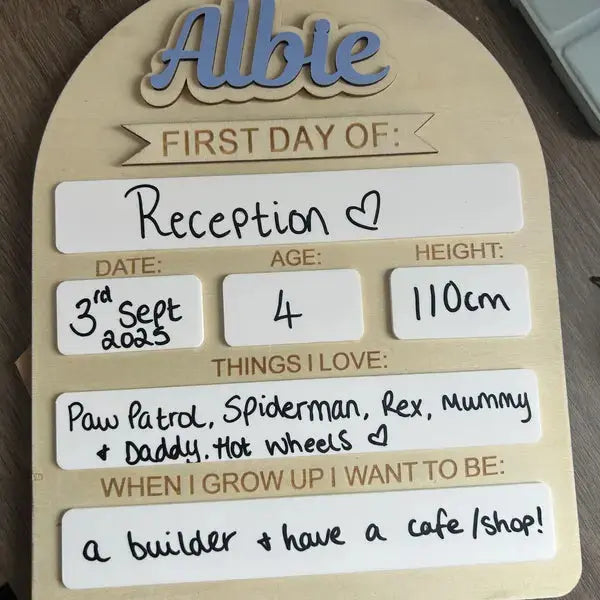 Albie
FIRST DAY OF:
Reception ♡
DATE: AGE: HEIGHT:
3rd Sept 2025 4 110cm
THINGS I LOVE:
Paw Patrol, Spiderman, Rex, Mummy
+ Daddy. Hot Wheels ♡
WHEN I GROW UP I WANT TO BE:
a builder + have a cafe/shop!